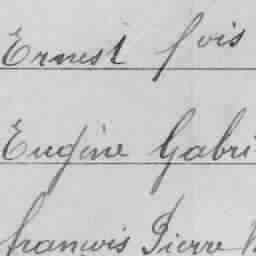 Ernest fois
Eugène Gabri
francois Pierre